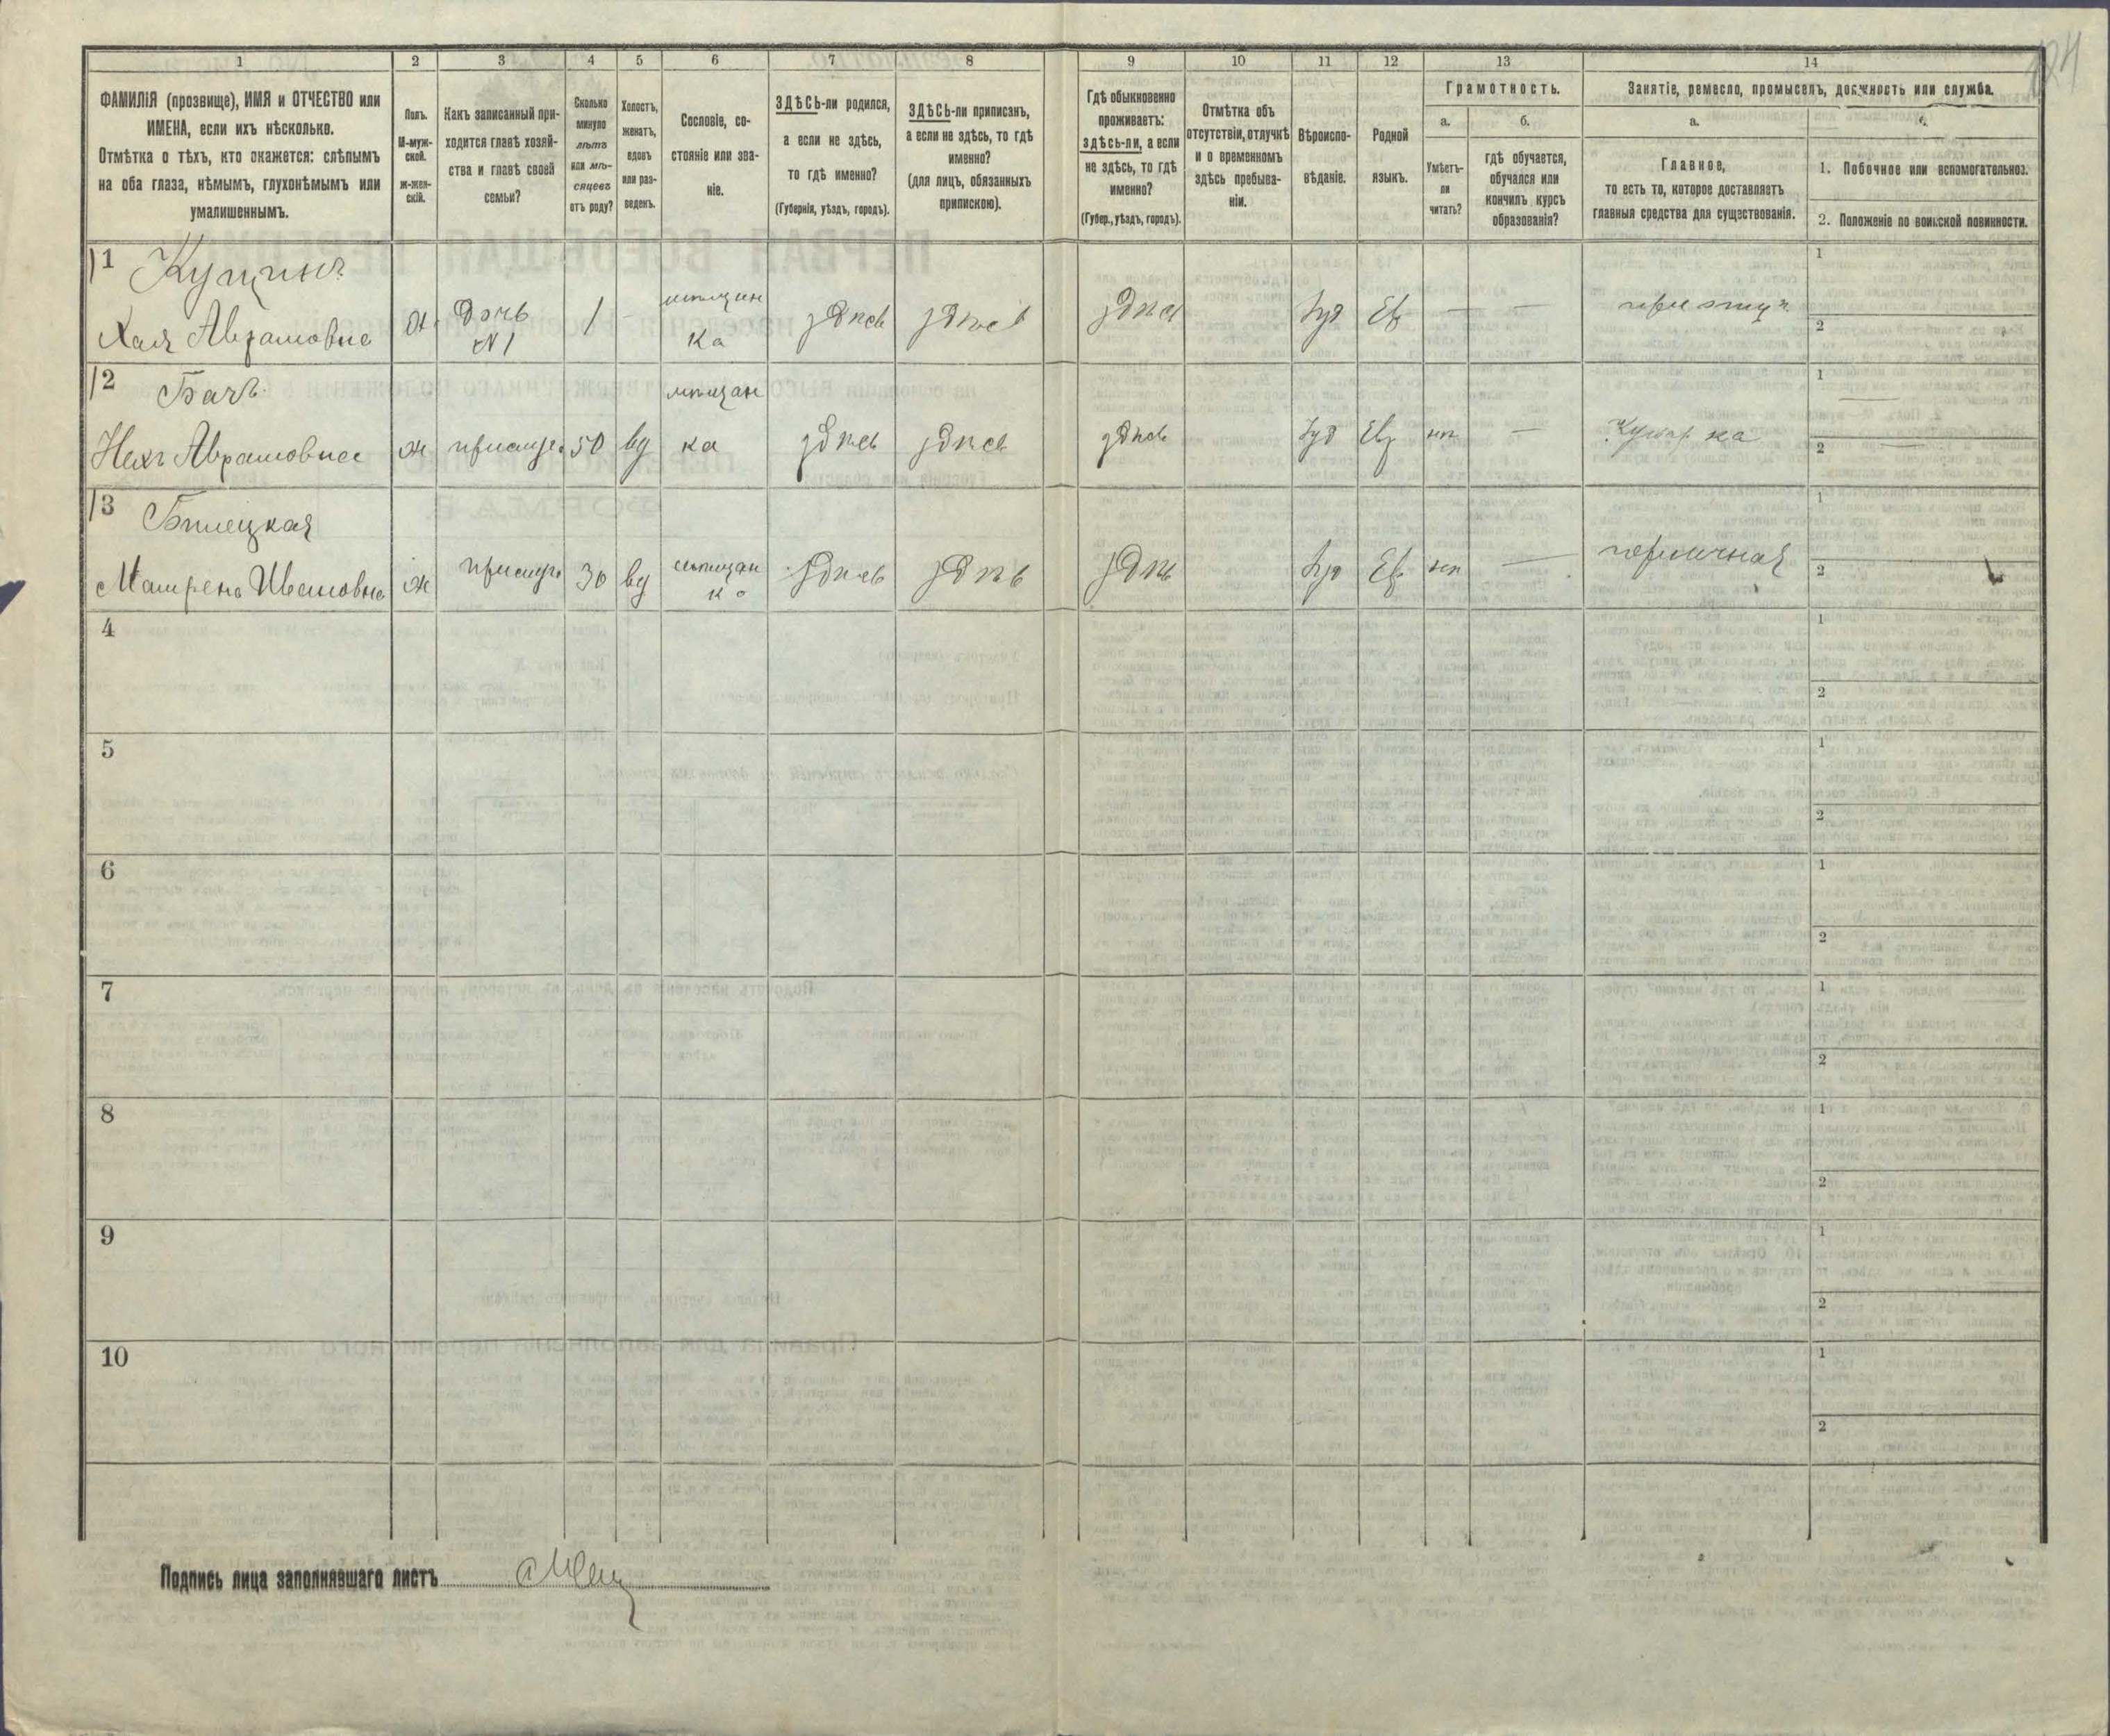 124
1
2
3
4
5
6
7
8
9
10
11
12
13
14
ФАМИЛІЯ (прозвище), ИМЯ и ОТЧЕСТВО или
ИМЕНА, если ихъ нѣсколько.
Отмѣтка о тѣхъ, кто окажется: слѣпымъ
на оба глаза, нѣмымъ, глухонѣмымъ или
умалишеннымъ.
Полъ.
М-муж-
ской.
ж-жен-
скій.
Какъ записанный при-
ходится главѣ хозяй-
ства и главѣ своей
семьи?
Сколько
минуло
лѣтъ
или мѣ-
сяцевъ
отъ роду?
Холостъ,
женатъ,
вдовъ
или раз-
веденъ.
Сословіе, со-
стояніе или зва-
ніе.
ЗДѢСЬ-ли родился,
а если не здѣсь,
то гдѣ именно?
(Губернія, уѣздъ, городъ).
ЗДѢСЬ-ли приписанъ,
а если не здѣсь, то гдѣ
именно?
(для лицъ, обязанныхъ
припискою).
Гдѣ обыкновенно
проживаетъ:
здѣсь-ли, а если
не здѣсь, то гдѣ
именно?
(Губер., уѣздъ, городъ).
Отмѣтка объ
отсутствіи, отлучкѣ
и о временномъ
здѣсь пребыва-
ніи.
Вѣроиспо-
вѣданіе.
Родной
языкъ.
Грамотность.
а.
Умѣетъ-
ли
читать?
б.
гдѣ обучается,
обучался или
кончилъ курсъ
образованія?
Занятіе, ремесло, промыселъ, должность или служба.
а.
Главное,
то есть то, которое доставляетъ
главныя средства для существованія.
б.
1. Побочное или вспомогательное.
2. Положеніе по воинской повинности.
11 Кущинъ
Хая Абрамовна
ж
дочь
N 1
1
-
мѣщан
ка
здѣсь
здѣсь
здѣсь
Іуд
Ев
—
—
1
2
12 Бачъ
Неха Абрамовна
ж
прислуга
50
вд
мѣщан
ка
здѣсь
здѣсь
здѣсь
Іуд
Ев
нѣт
—
Кухарка
1
2
13 Бѣлецкая
Матрена Ивановна
ж
прислуга
30
вд
мѣщан
ка
здѣсь
здѣсь
здѣсь
Іуд
Ев
нѣт
—
горничная
1
2
4
1
2
5
1
2
6
1
2
7
1
2
8
1
2
9
1
2
10
1
2
Подпись лица заполнявшаго листъ